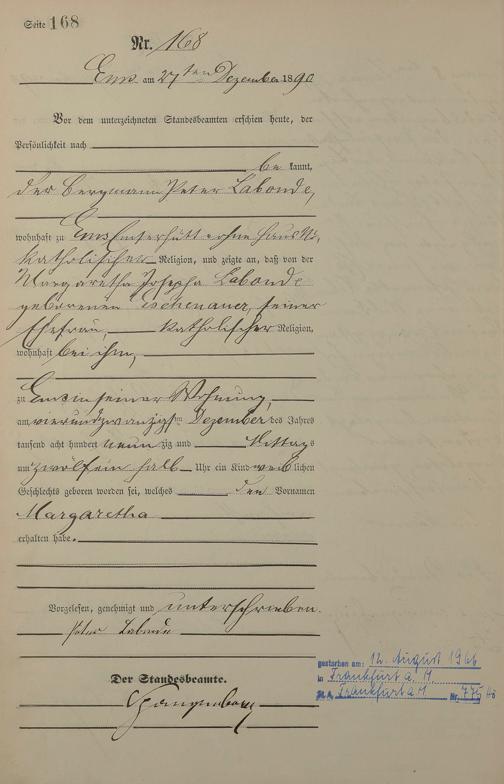 Seite 168
Nr. 168
Ems am 27ten Dezember 1890
Vor dem unterzeichneten Standesbeamten erschien heute, der
Persönlichkeit nach
be kannt,
der Bergmann Peter Labonde,
wohnhaft zu Ems ohne Haus Nr,
katholischer Religion, und zeigte an, daß von der
Margaretha Josepha Labonde
geborenen Eschenauer, seiner
Ehefrau, katholischer Religion,
wohnhaft bei ihm,
zu Ems in seiner Wohnung,
am vierundzwanzigsten Dezember des Jahres
tausend acht hundert neun zig und Mittags
um zwölfein halb Uhr ein Kind weib lichen
Geschlechts geboren worden sei, welches den Vornamen
Margaretha
erhalten habe.
Vorgelesen, genehmigt und unterschrieben.
Peter Labonde
Der Standesbeamte.
gestorben am: 12. August 1966
in Frankfurt a. M.
St.A. Frankfurt a M Nr. 775